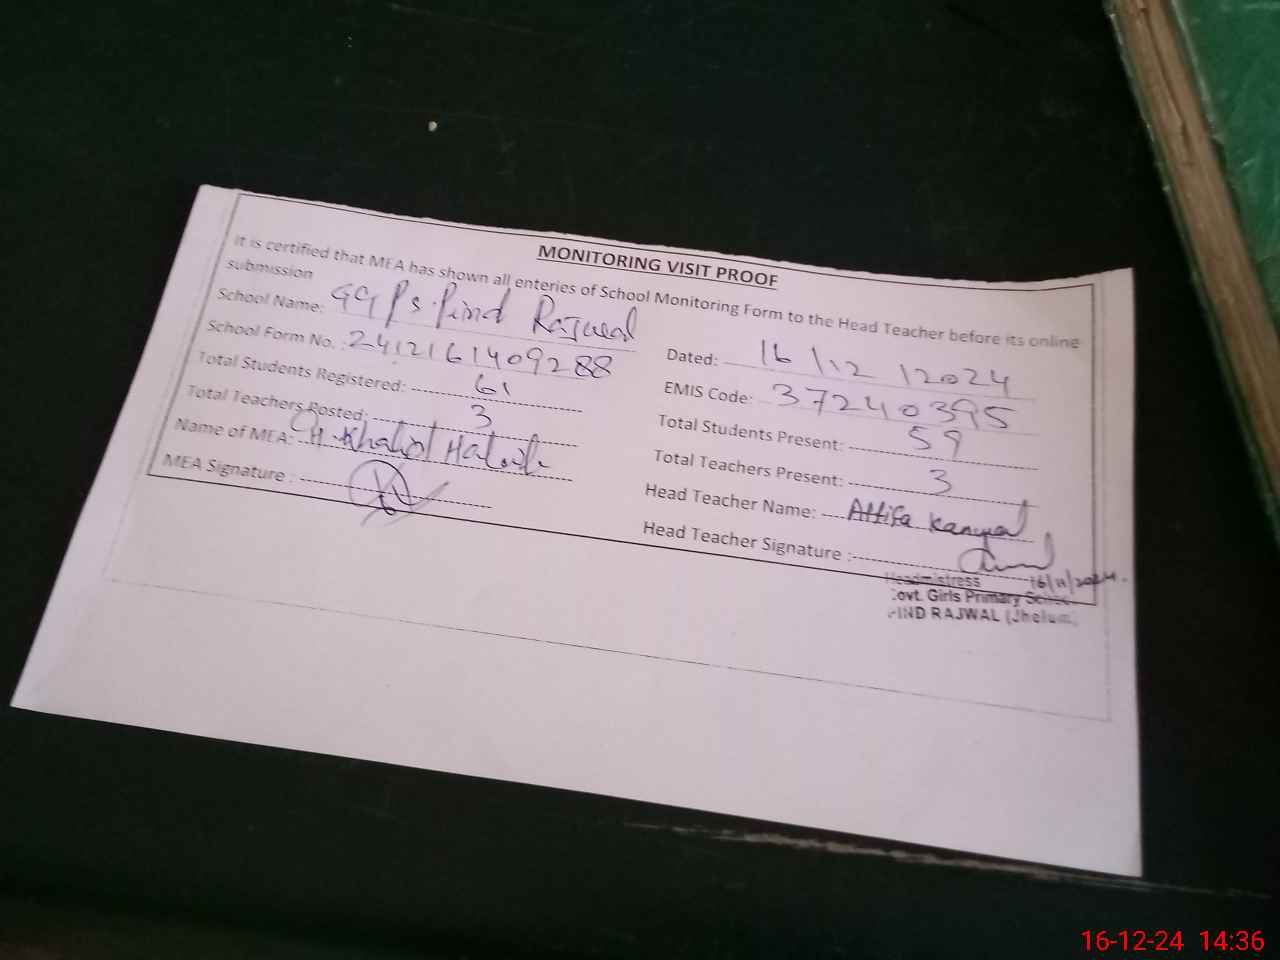 MONITORING VISIT PROOF
It is certified that MEA has shown all enteries of School Monitoring Form to the Head Teacher before its online
submission
School Name: GGPS Pind Rajwal
Dated: 16/12/2024
School Form No. : 2412161409288
EMIS Code: 37240395
Total Students Registered: 61
Total Students Present: 59
Total Teachers Posted: 3
Total Teachers Present: 3
Name of MEA: CH. Khalid
Head Teacher Name: Attifa
MEA Signature :
Head Teacher Signature :
Headmistress 16/11/2024.
Govt. Girls Primary School
PIND RAJWAL (Jhelum)
16-12-24 14:36